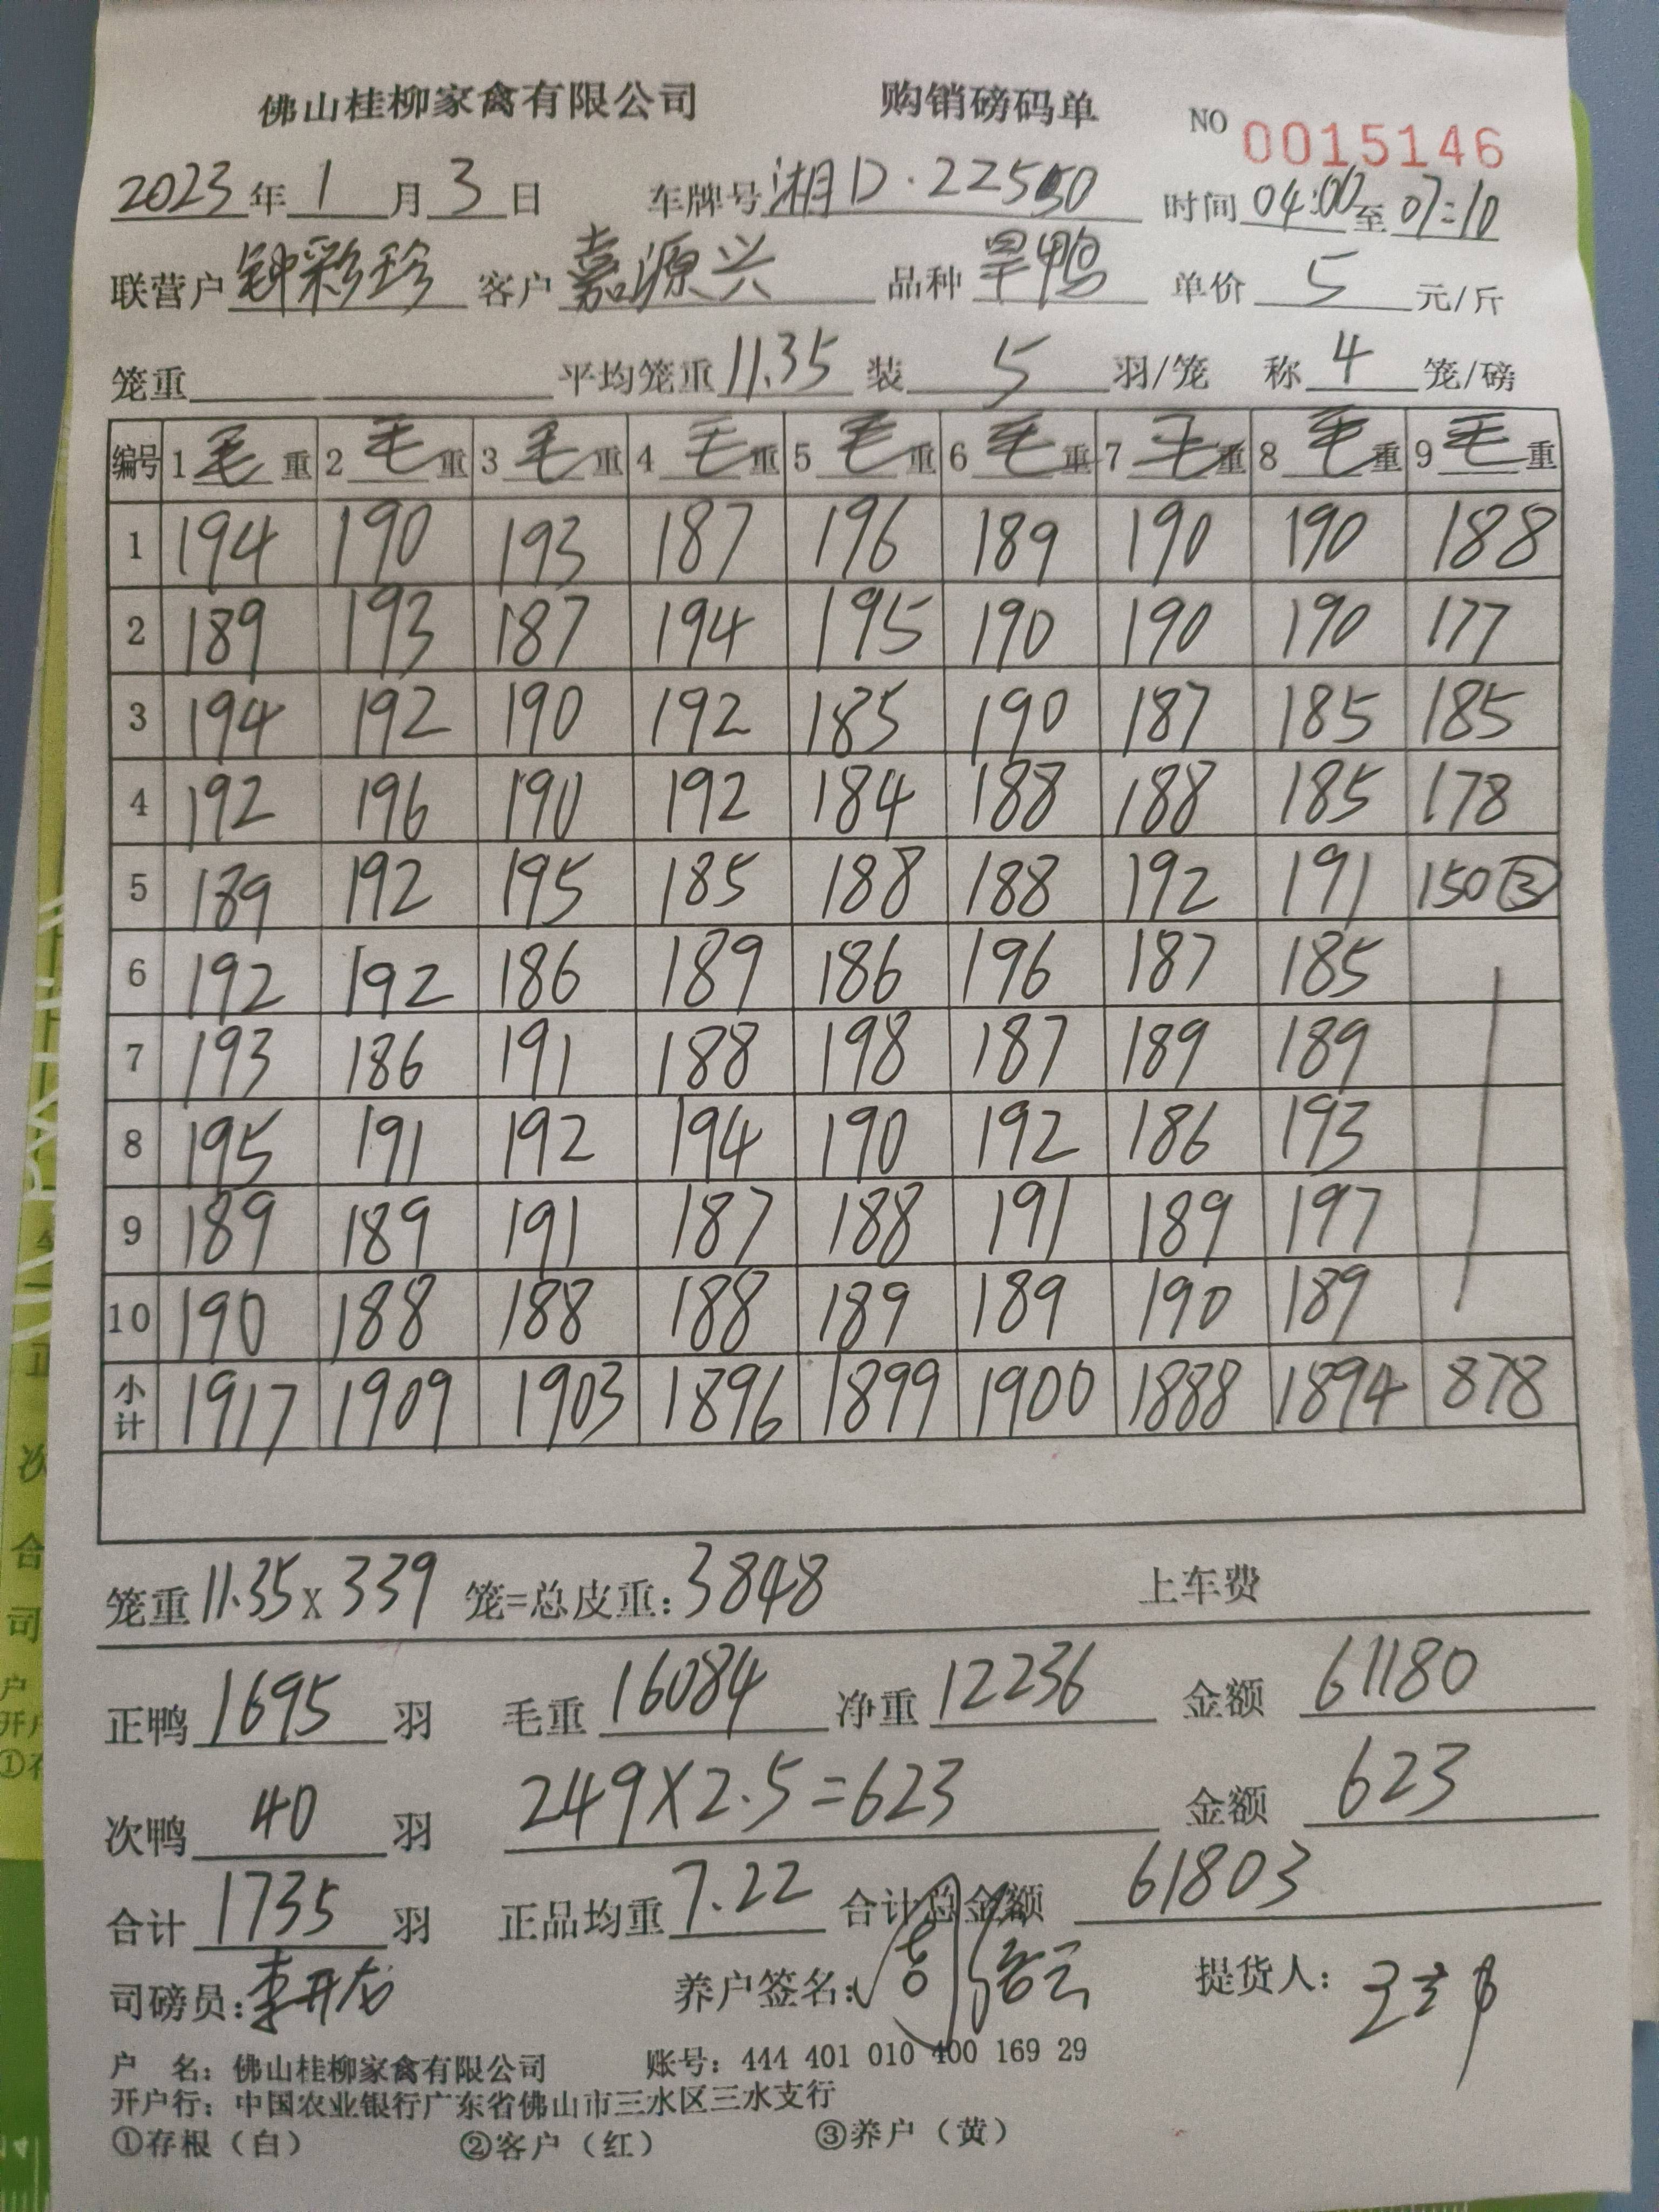 佛山桂柳家禽有限公司 购销磅码单 NO 0015146
2023年1月3日 车牌号湘D·22550 时间04:00至07:10
联营户钟彩珍 客户嘉源兴 品种旱鸭 单价5元/斤
笼重 平均笼重11.35 装5羽/笼 称4笼/磅
编号 1毛重 2毛重 3毛重 4毛重 5毛重 6毛重 7毛重 8毛重 9毛重
1 194 190 193 187 196 189 190 190 188
2 189 193 187 194 195 190 190 190 177
3 194 192 190 192 185 190 187 185 185
4 192 196 190 192 184 188 188 185 178
5 189 192 195 185 188 188 192 191 150③
6 192 192 186 189 186 196 187 185
7 193 186 191 188 198 187 189 189
8 195 191 192 194 190 192 186 193
9 189 189 191 187 188 191 189 197
10 190 188 188 188 189 189 190 189
小计 1917 1909 1903 1896 1899 1900 1888 1894 878
笼重11.35X339笼=总皮重：3848 上车费
正鸭1695羽 毛重16084 净重12236 金额61180
次鸭40羽 249X2.5=623 金额623
合计1735羽 正品均重7.22 合计总金额61803
司磅员：李开龙 养户签名： 提货人：
户 名：佛山桂柳家禽有限公司 账号：444 401 010 400 169 29
开户行：中国农业银行广东省佛山市三水区三水支行
①存根（白） ②客户（红） ③养户（黄）